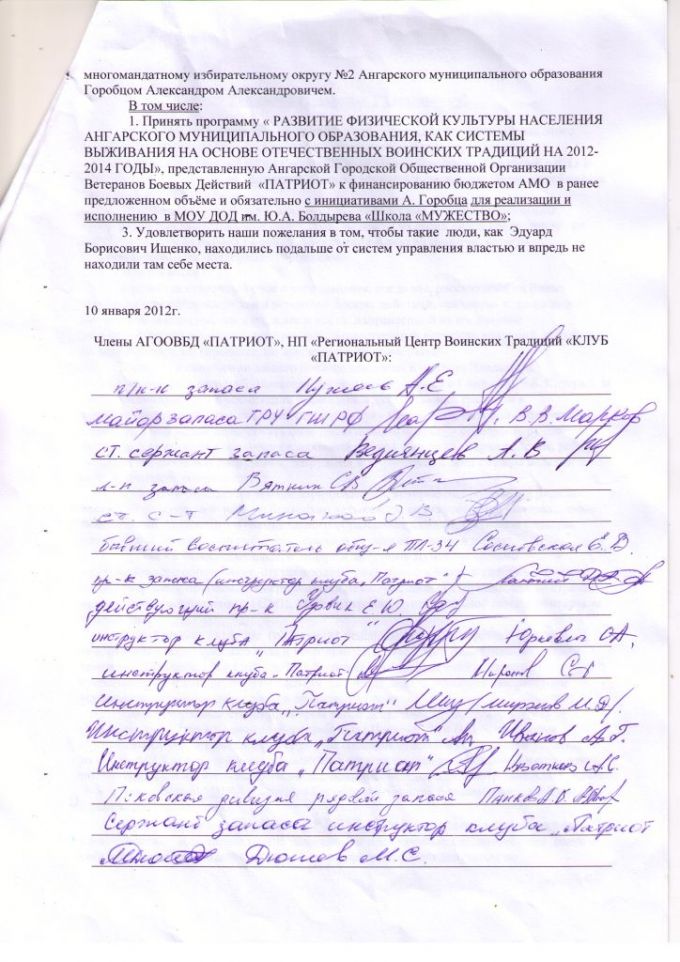 многомандатному избирательному округу №2 Ангарского муниципального образования
Горобцом Александром Александровичем.
В том числе:
1. Принять программу « РАЗВИТИЕ ФИЗИЧЕСКОЙ КУЛЬТУРЫ НАСЕЛЕНИЯ
АНГАРСКОГО МУНИЦИПАЛЬНОГО ОБРАЗОВАНИЯ, КАК СИСТЕМЫ
ВЫЖИВАНИЯ НА ОСНОВЕ ОТЕЧЕСТВЕННЫХ ВОИНСКИХ ТРАДИЦИЙ НА 2012-
2014 ГОДЫ», представленную Ангарской Городской Общественной Организации
Ветеранов Боевых Действий «ПАТРИОТ» к финансированию бюджетом АМО в ранее
предложенном объёме и обязательно с инициативами А. Горобца для реализации и
исполнению в МОУ ДОД им. Ю.А. Болдырева «Школа «МУЖЕСТВО»;
3. Удовлетворить наши пожелания в том, чтобы такие люди, как Эдуард
Борисович Ищенко, находились подальше от систем управления властью и впредь не
находили там себе места.
10 января 2012г.
Члены АГООВБД «ПАТРИОТ», НП «Региональный Центр Воинских Традиций «КЛУБ
«ПАТРИОТ»:
п/к-к запаса А.Е
майор запаса ГРУ ГШ РФ В.В. Марков
ст. сержант запаса Ведянцев А.В
запаса Вяткин С В
ст. с-т
бывший воспитатель общ-я ПЛ-34 Сосновская Е.В.
пр-к запаса (инструктор клуба "Патриот")
действующий пр-к Е Ю.
инструктор клуба "Патриот" Юркевич О.А.
инструктор клуба "Патриот
инструктор клуба "Патриот"
Инструктор клуба "Патриот" Иванов А.Г.
Инструктор клуба "Патриот"
Псковская дивизия рядовой запаса
Сержант запаса инструктор клуба "Патриот
Дюшев М.С.